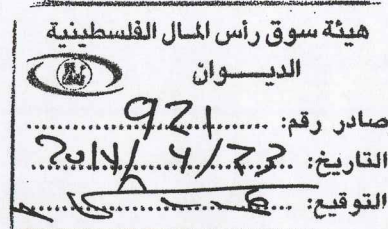 هيئة سوق رأس المال الفلسطينية
الديـــوان
صادر رقم: 921
التاريخ:
التوقيع: